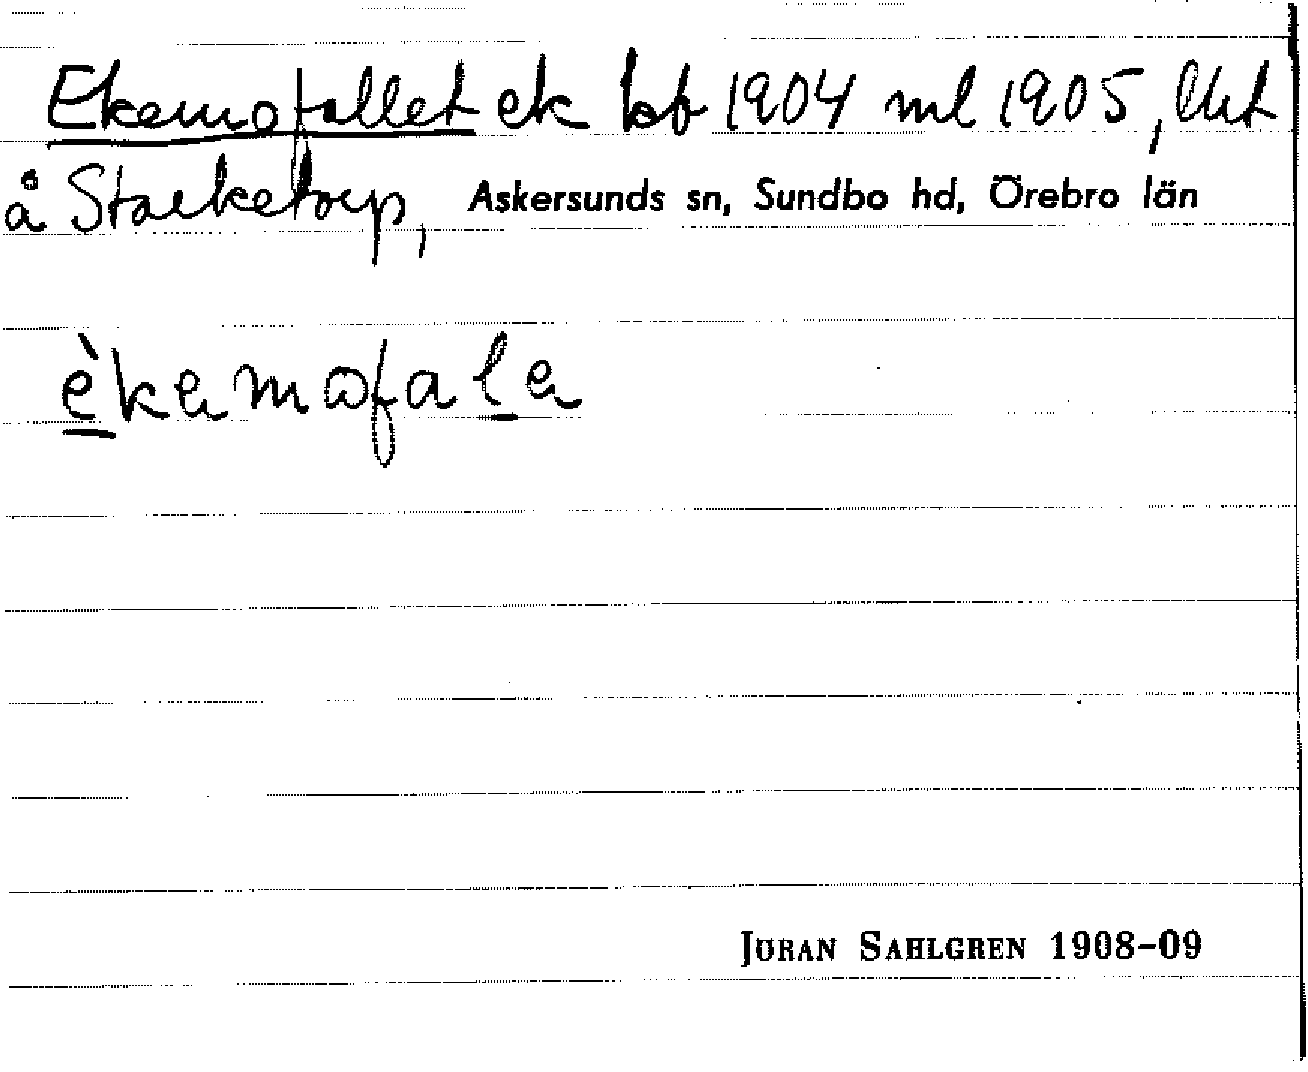 Ekemofallet ek kb 1904 ml 1905, lht
å Starketorp, Askersunds sn, Sundbo hd, Örebro län
èkemofale
JÖRAN SAHLGREN 1908-09